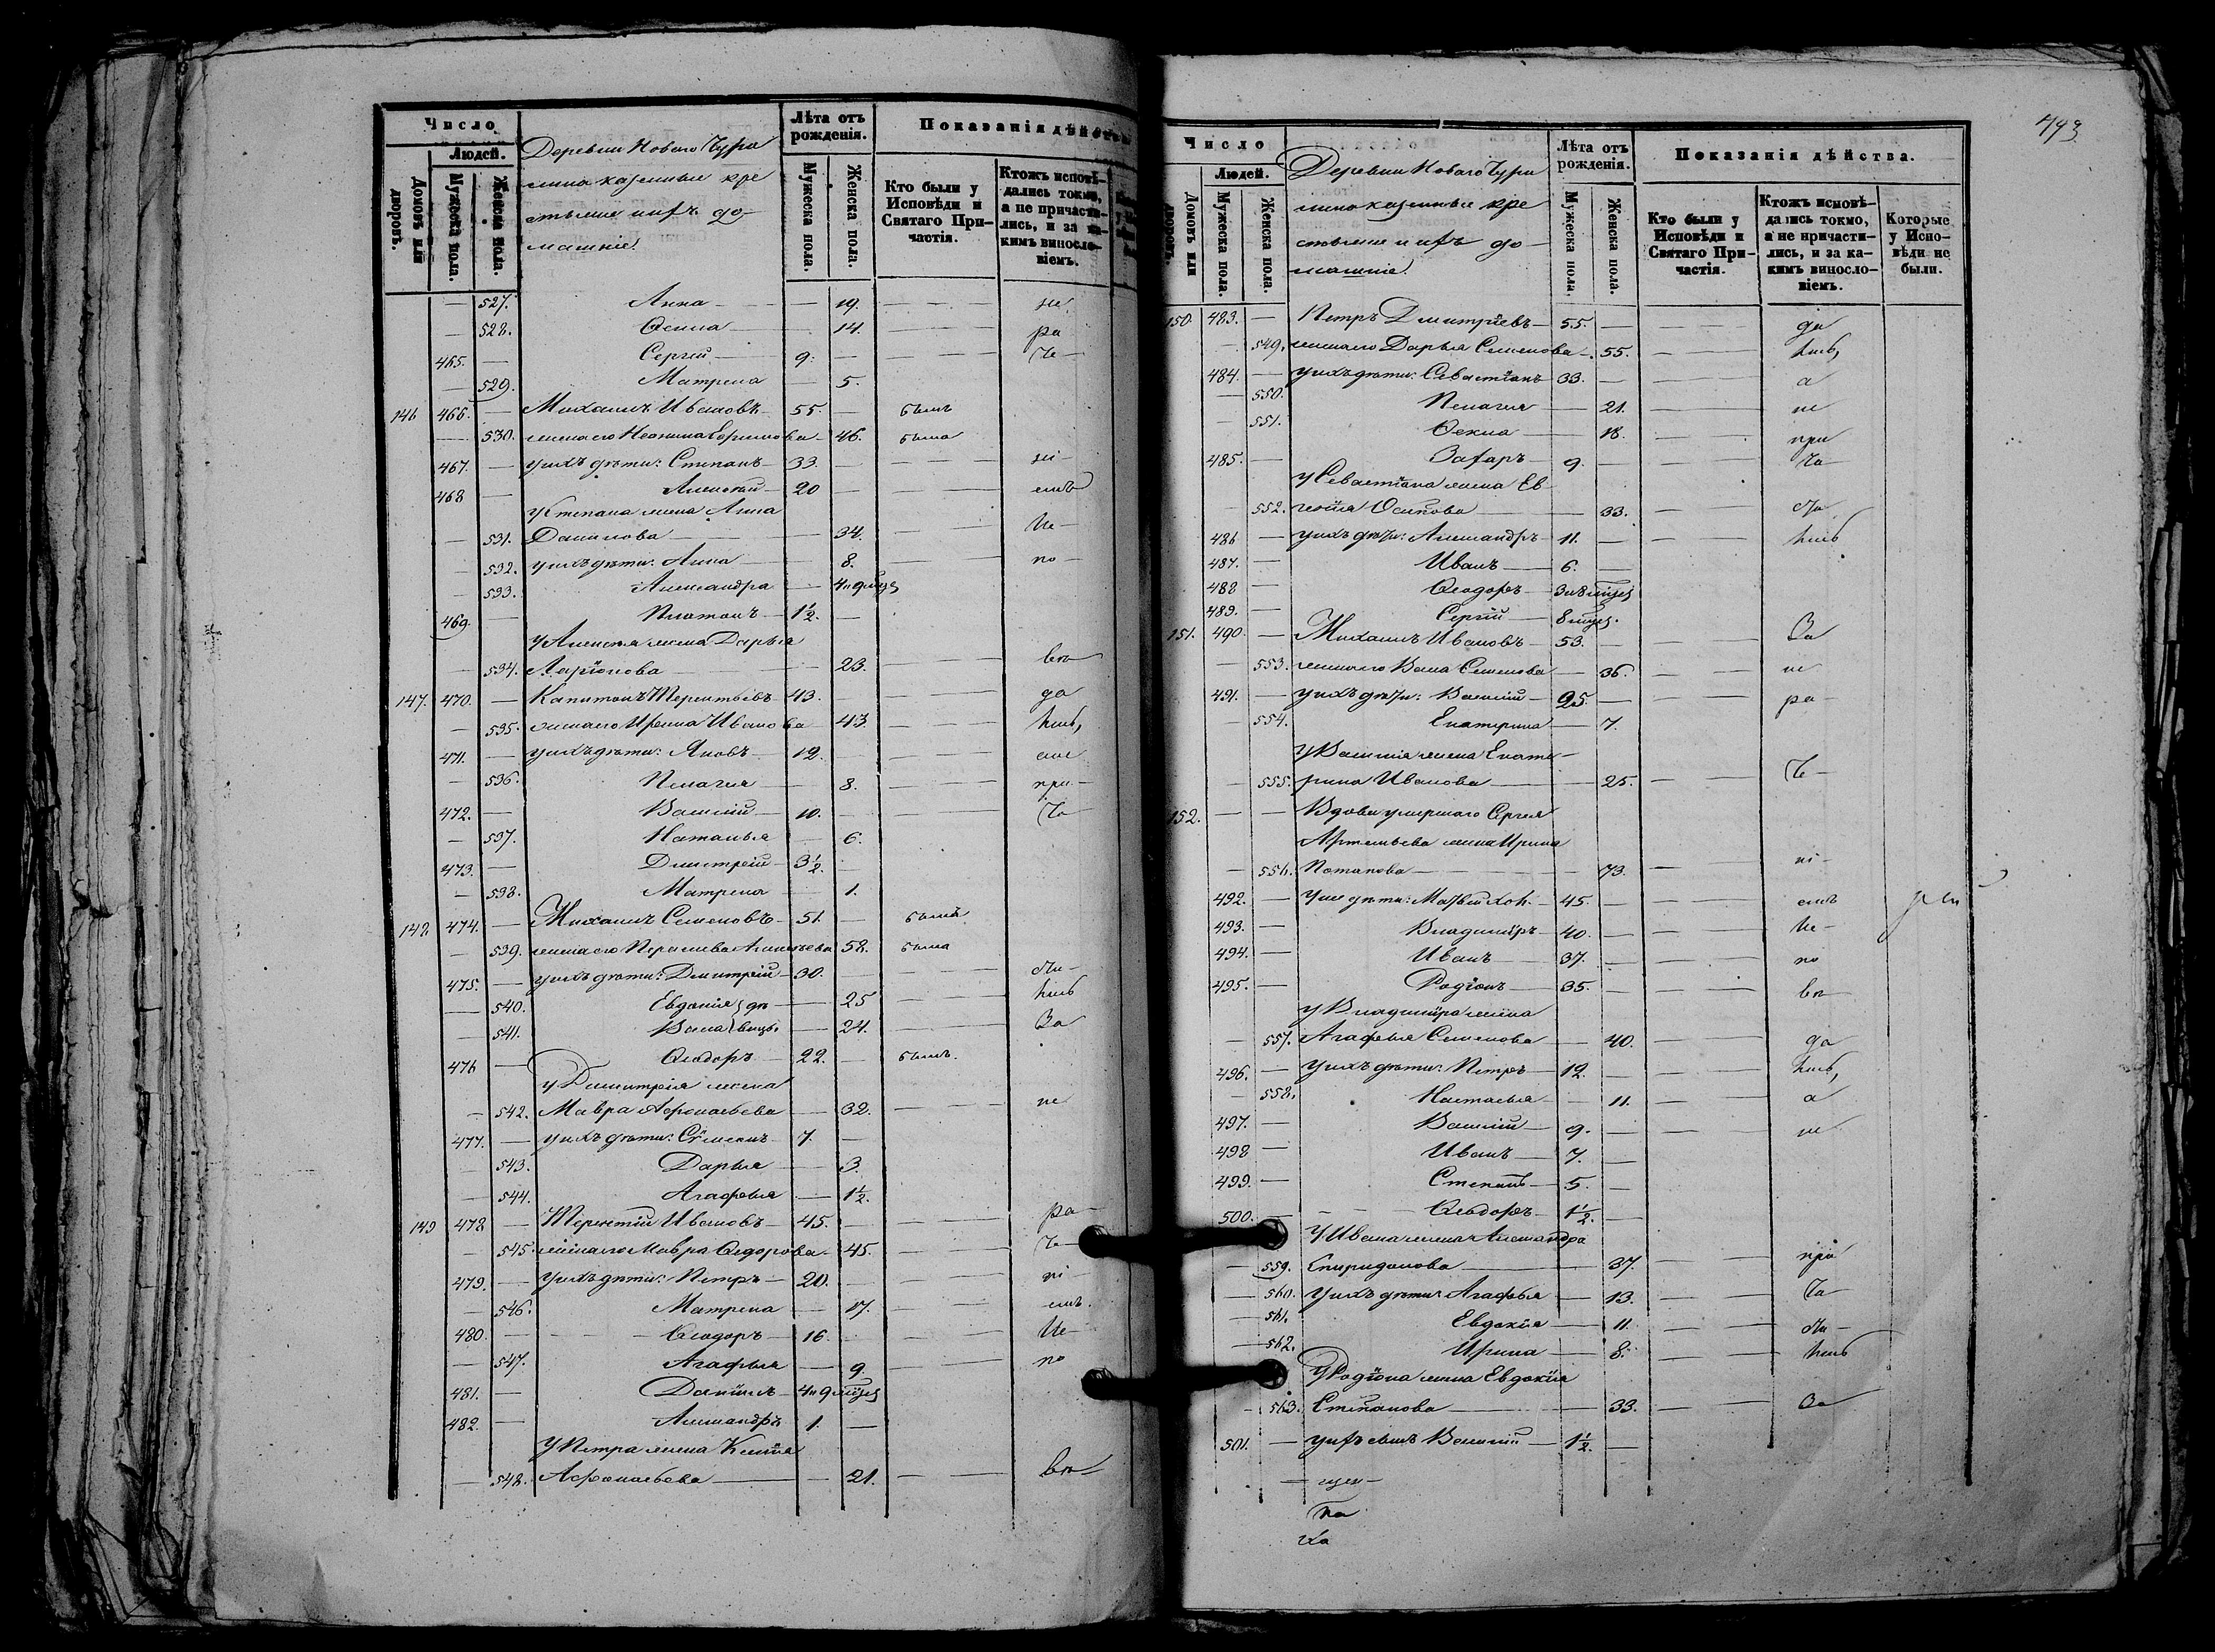 Число
Людей.
Домовъ или дворовъ.
Мужеска пола.
Женска пола.
Деревни Новаго Чура
лина казенные кре
стьяне и ихъ до-
машніе.
Лѣта отъ рожденія.
Мужеска пола.
Женска пола.
Показанія дѣйства
Кто были у Исповѣди и Святаго При-частія.
Ктожъ исповѣ-дались токмо, а не причасти-лись, и за ка-кимъ винословіемъ.
— 527. Анна — 19. не
— 528. Фекла — 14. ра
465. — Сергѣй 9. —
— 529. Матрена — 5.
146 466. — Михаилъ Ивановъ 55. — былъ
— 530. жена его Неонила Ефимова — 46. была
467. — у нихъ дѣти: Степанъ 33. —
468 — Алексѣй 20 —
у Степана жена Анна
— 531. Данилова — 34. Не
— 532. у нихъ дѣти: Анна — 8. по
— 533. Александра — 4 и 9 мцсѣ
469. — Платонъ 1½. —
у Алексѣя жена Дарья
— 534. Ларіонова — 23.
147. 470. — Капитонъ Терентьевъ 43. — да
— 535. жена его Ирина Иванова — 43
471. — у нихъ дѣти: Яковъ 12.
— 536. Пелагея — 8. при
472. — Василій 10.
— 537. Наталья — 6.
473. — Дмитрій 3½.
— 538. Матрена — 1.
148 474. — Михаилъ Семеновъ 51. — былъ
— 539. жена его Парасковья 52. была
475. — у нихъ дѣти: Дмитрій 30.
— 540. Евдокія } дѣ — 25
— 541. Васса } вицы — 24. За
476 — Ѳеодоръ 22. — былъ.
у Димитрія жена
— 542. Мавра Афонасьева — 32. не
477. — у нихъ дѣти: 7. —
— 543. Дарья — 3.
— 544. Агафья — 1½.
149 478 — Терентій Ивановъ 45. ра
— 545 жена его Мавра Ѳедорова — 45.
479. — у нихъ дѣти: Петръ 20.
— 546. Матрена — 17.
480. — Ѳеодоръ 16. Не
— 547. Агафья — 9. по
481. — Даніилъ 4 и 9 мцсѣ
482. — Александръ 1. —
у Петра жена Ксенія
— 548. Афонасьева — 21.
443
Число
Людей.
Домовъ или дворовъ.
Мужеска пола.
Женска пола.
Деревни Новаго Чура
лина казенные кре
стьяне и ихъ до-
машніе.
Лѣта отъ рожденія.
Мужеска пола.
Женска пола.
Показанія дѣйства.
Кто были у Исповѣди и Святаго При-частія.
Ктожъ исповѣ-дались токмо, а не причасти-лись, и за ка-кимъ винословіемъ.
Которые у Испо-вѣди не были.
150. 483. — Петръ Дмитріевъ 55. — да
— 549. жена его Дарья Семенова — 55.
484. — у нихъ дѣти: Севастіанъ 33. — а
— 550. Пелагея — 21. не
— 551. Фекла — 18. при
485. — Захаръ 9. — ча
у Севастіана жена Ев
— 552. генія Осипова — 33.
486 — у нихъ дѣти: Александръ 11. —
487. — Иванъ 6. —
488 — Ѳеодоръ 3 и 8 мцсѣ
489. — Сергій 8 мцсѣ.
151. 490. — Михаилъ Ивановъ 53. — За
— 553. жена его Васса Семенова — 36. не
491. — у нихъ дѣти: Василій 25. — ра
— 554. Екатерина — 7.
у Василія жена Екате-
— 555. рина Иванова — 25.
152. — — Вдова умершаго Сергея
Артемьева жена Ирина
— 556. Потапова — 73.
492. — у нея дѣти: Матвѣй хол. 45. —
493. — Владиміръ 40. — Не
494. — Иванъ 37. — по
495. — Родіонъ 35. —
у Владиміра жена
— 557. Агафья Семенова — 40. да
496. — у нихъ дѣти: Петръ 12. —
— 558. Наталья — 11. а
497. — Василій 9. — не
498 — Иванъ 7. —
499. — Степанъ 5. —
500. — Ѳеодоръ 1½. —
У Ивана жена Александра
— 559. Спиридонова — 37. при
— 560. у нихъ дѣти: Агафья — 13. ча
— 561. Евдокія — 11.
— 562. Ирина — 8.
У Родіона жена Евдокія
— 563. Степанова — 33. За
501. — у ихъ сынъ Василій 1½. —